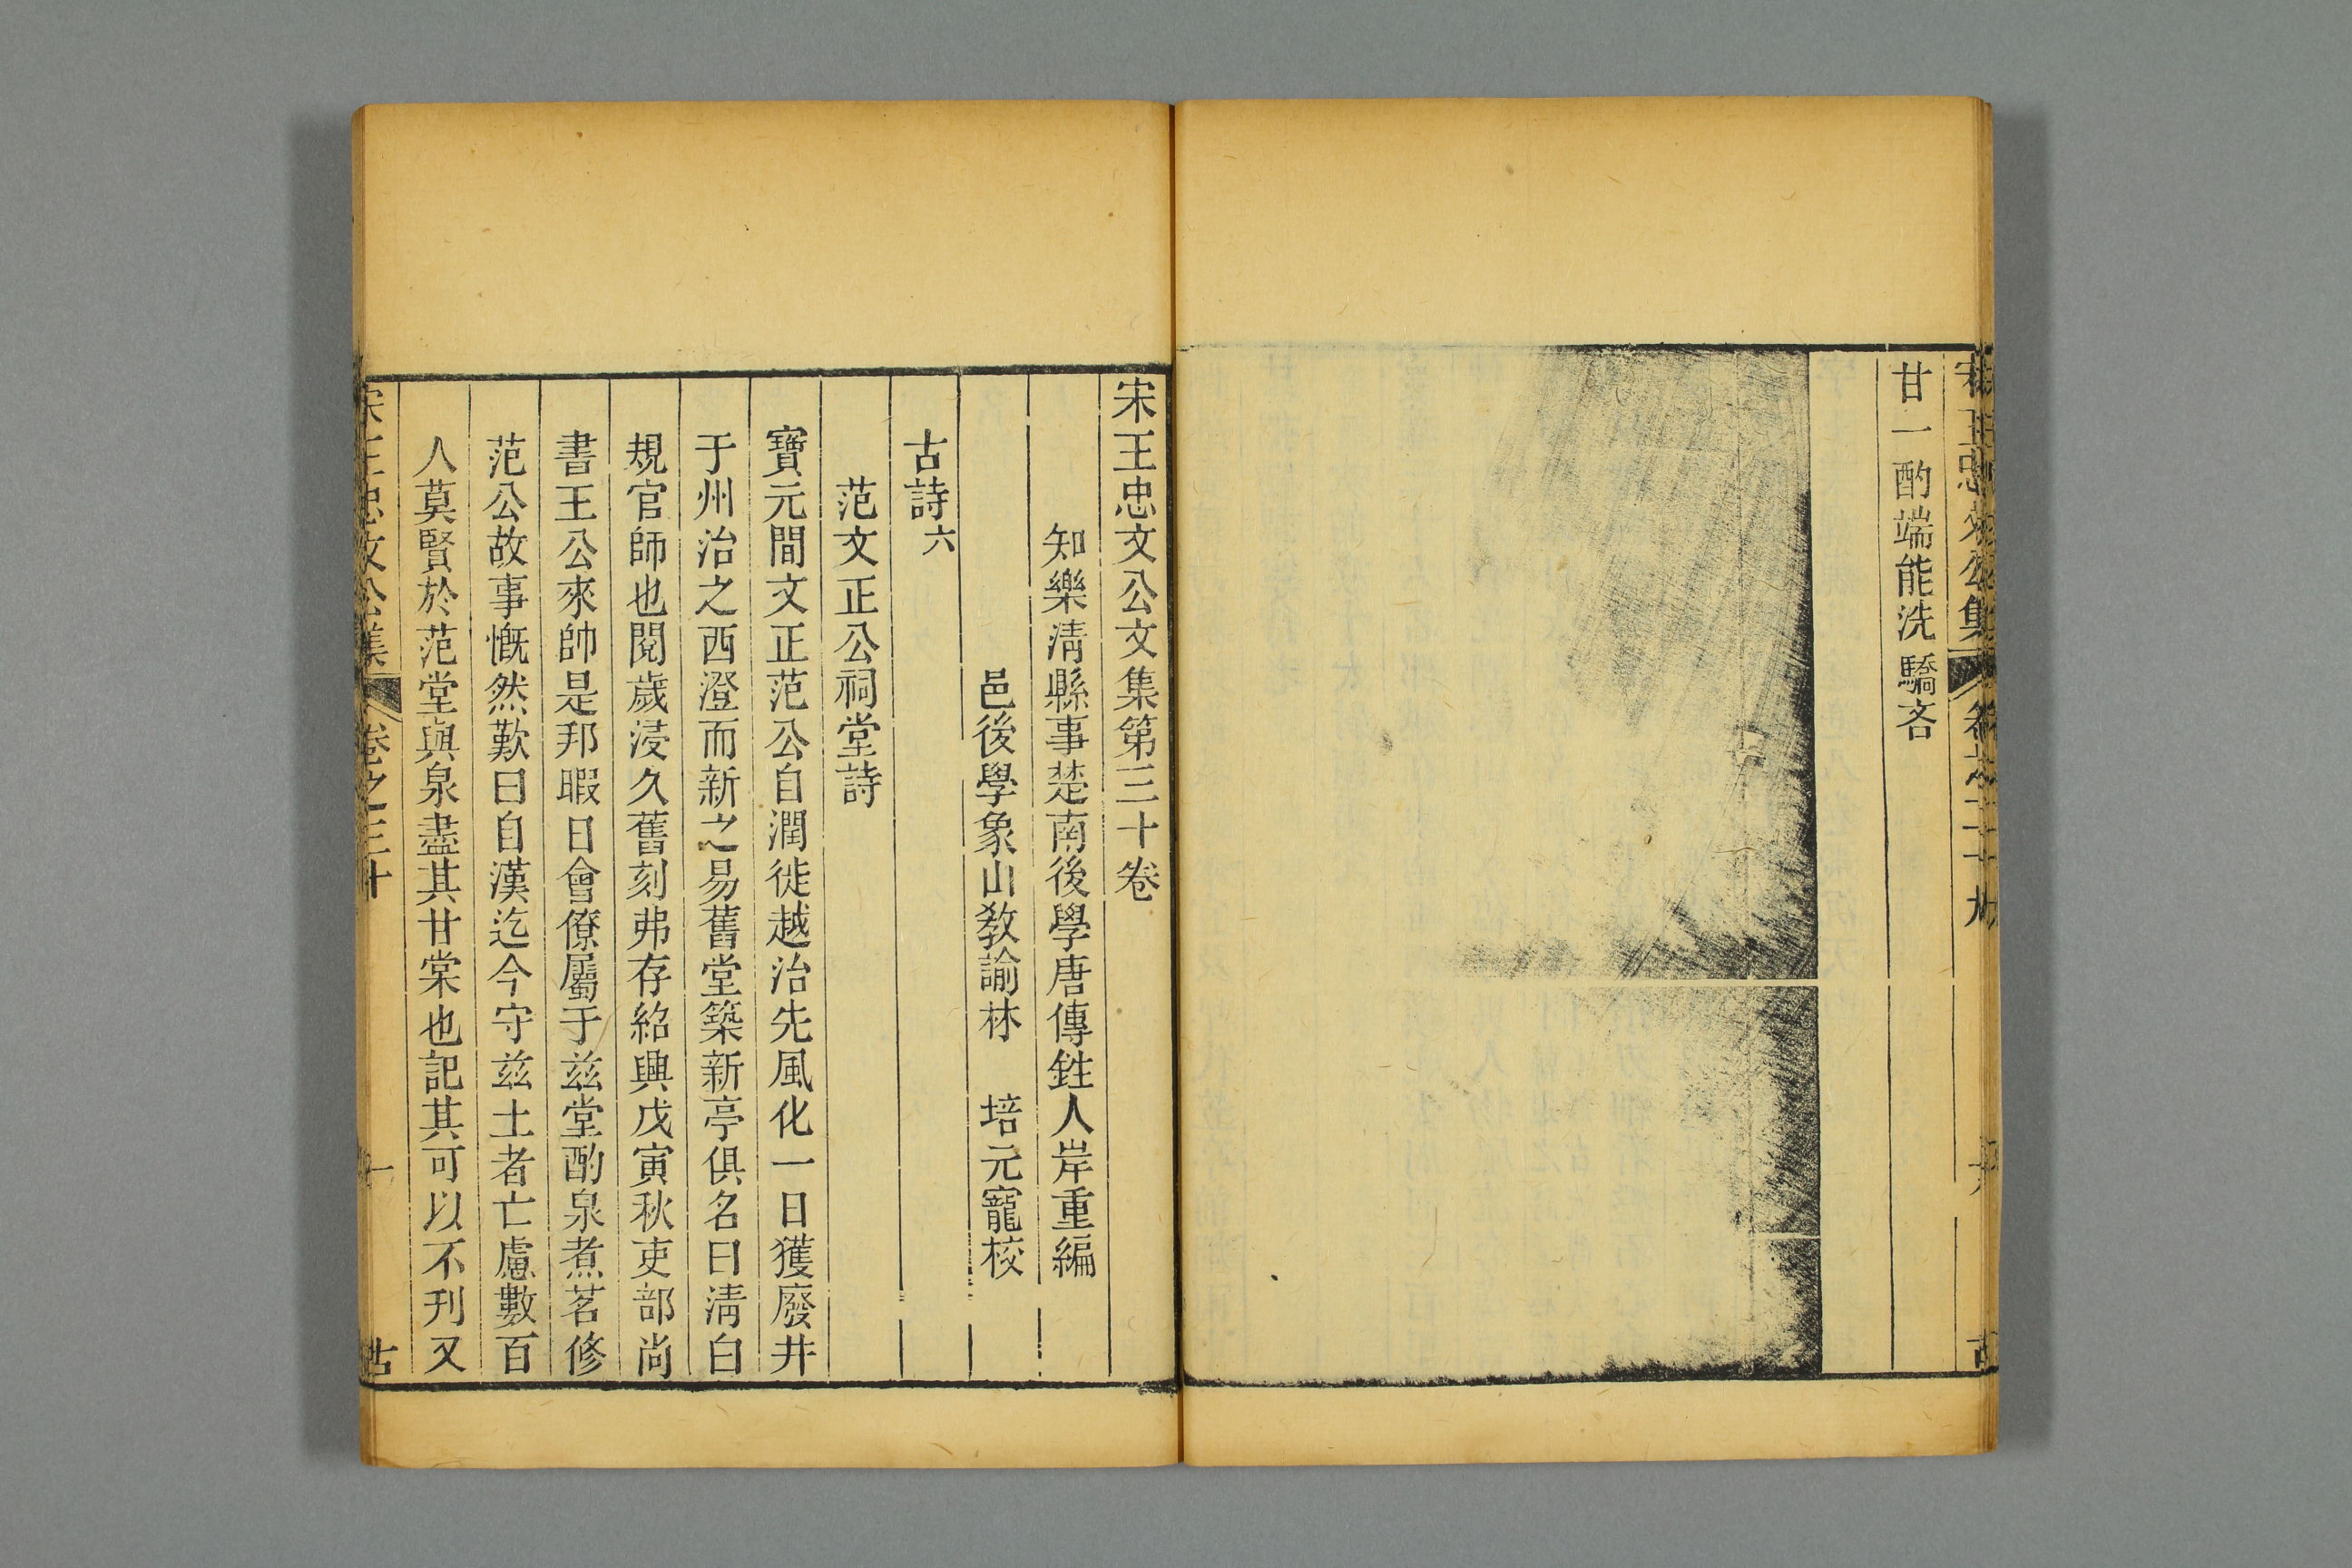 宋王忠文公集 卷之二十九
甘一酌端能洗驕吝
宋王忠文公文集第三十卷
知樂淸縣事楚南後學唐傳鉎人岸重編
邑後學象山敎諭林 培元寵校
古詩六
范文正公祠堂詩
寶元間文正范公自潤徙越治先風化一日獲廢井
于州治之西澄而新之易舊堂築新亭俱名曰淸白
規官師也閱歲浸久舊刻弗存紹興戊寅秋吏部尚
書王公來帥是邦暇日會僚屬于兹堂酌泉煮茗修
范公故事慨然歎曰自漢迄今守兹土者亡慮數百
人莫賢於范堂與泉盡其甘棠也記其可以不刊又
宋王忠文公集 卷之三十 一